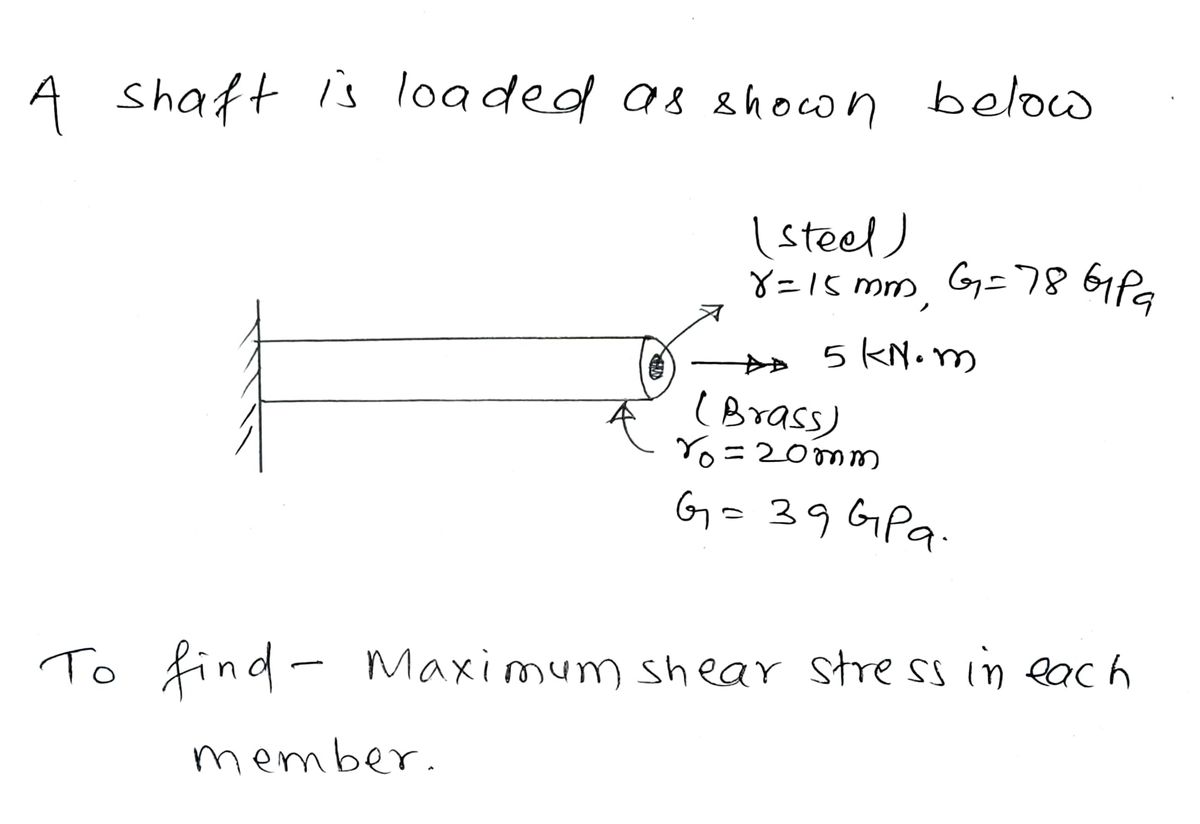 A shaft is loaded as shown below
(steel)
r=15 mm, G=78 GPa
5 kN.m
(Brass)
r₀=20mm
G= 39 GPa.
To find- Maximum shear stress in each
member.